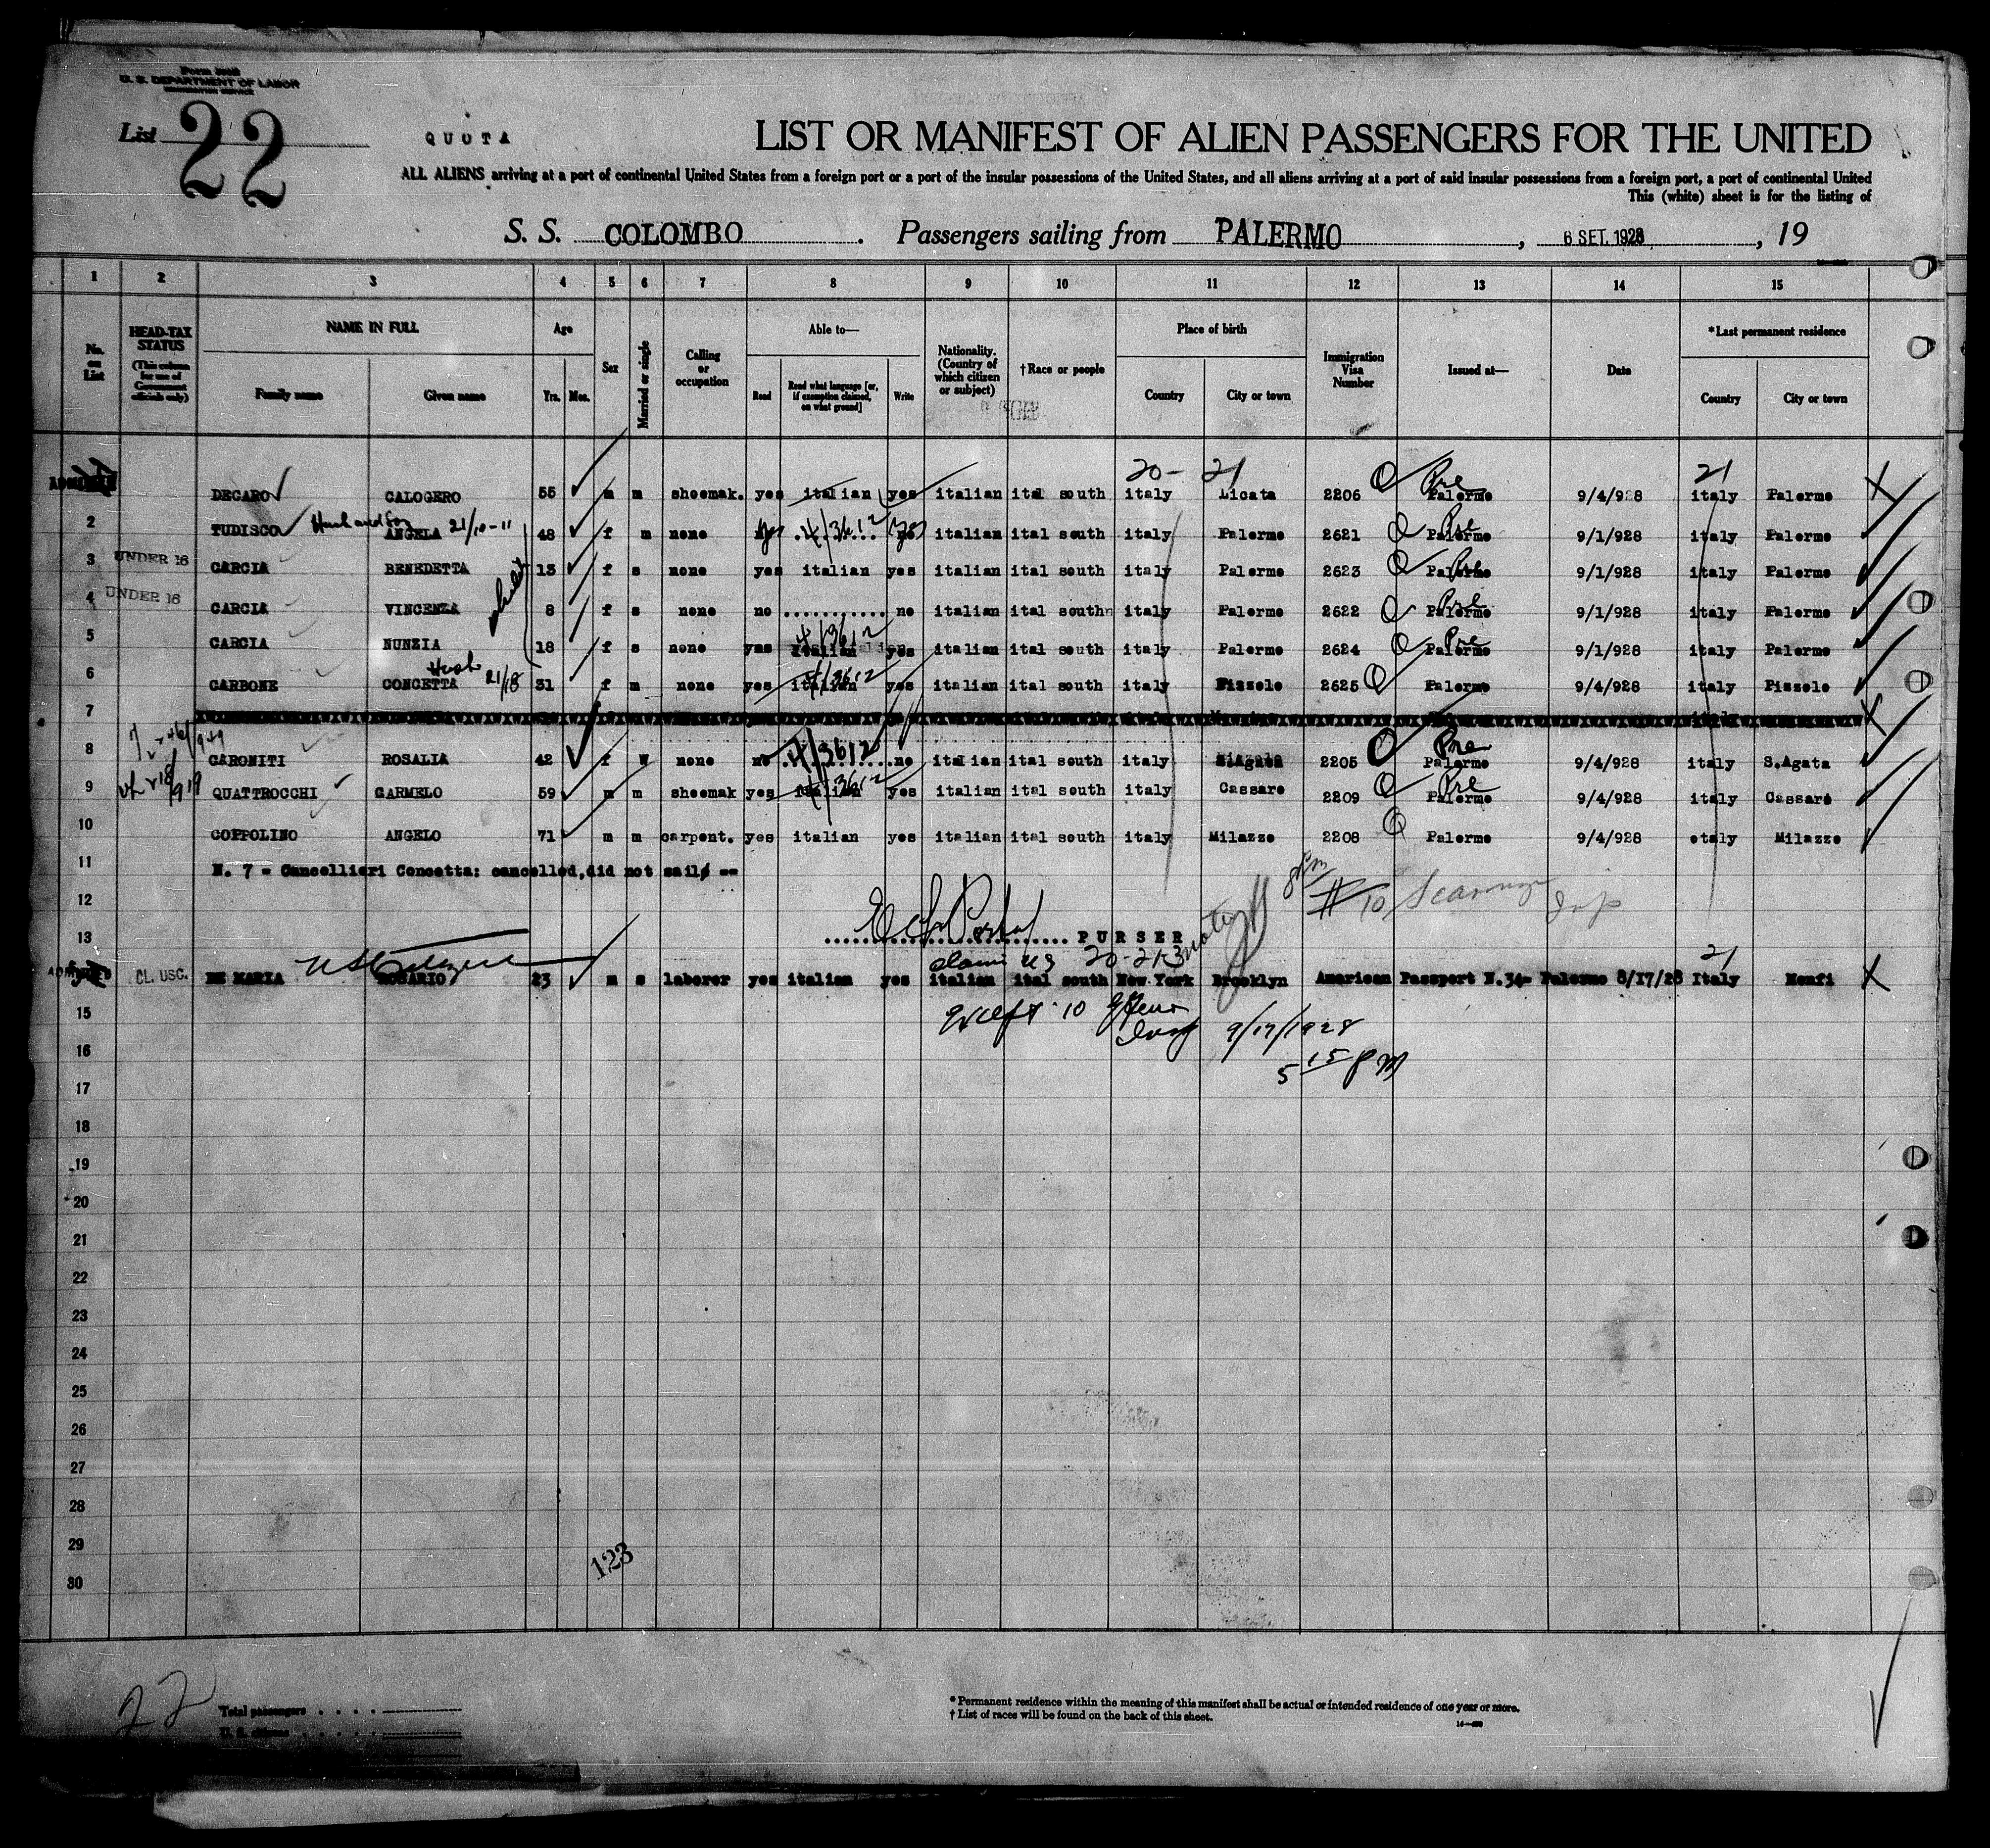 U. S. DEPARTMENT OF LABOR
List 22
QUOTA
LIST OR MANIFEST OF ALIEN PASSENGERS FOR THE UNITED
ALL ALIENS arriving at a port of continental United States from a foreign port or a port of the insular possessions of the United States, and all aliens arriving at a port of said insular possessions from a foreign port, a port of continental United
This (white) sheet is for the listing of
S. S. COLOMBO . Passengers sailing from PALERMO , 6 SET. 1928 , 19
1 2 3 4 5 6 7 8 9 10 11 12 13 14 15
No. on List HEAD-TAX STATUS (This column for use of Government officials only) NAME IN FULL Family name Given name Age Yrs. Mos. Sex Married or single Calling or occupation Able to— Read Read what language [or, if exemption claimed, on what ground] Write Nationality. (Country of which citizen or subject) †Race or people Place of birth Country City or town Immigration Visa Number Issued at— Date *Last permanent residence Country City or town
20- 21 21
DECARO CALOGERO 55 m m shoemak. yes italian yes italian ital south italy Licata 2206 Palermo 9/4/928 italy Palermo
2 TUDISCO ANGELA 21/10-11 48 f m none italian ital south italy Palermo 2621 Palermo 9/1/928 italy Palermo
3 UNDER 16 CARCIA BENEDETTA 13 f s none yes italian yes italian ital south italy Palermo 2623 Palermo 9/1/928 italy Palermo
4 UNDER 16 CARCIA VINCENZA 8 f s none no ........... no italian ital south italy Palermo 2622 Palermo 9/1/928 italy Palermo
5 CARCIA NUNZIA 18 f s none yes italian yes italian ital south italy Palermo 2624 Palermo 9/1/928 italy Palermo
6 CARBONE CONCETTA 21/18 31 f m none yes italian yes italian ital south italy 2625 Palermo 9/4/928 italy Pizzolo
7
8 CARONITI ROSALIA 42 f w none no no italian ital south italy 2205 Palermo 9/4/928 italy S.Agata
9 QUATTROCCHI CARMELO 59 m m shoemak yes italian yes italian ital south italy Cassaro 2209 Palermo 9/4/928 italy Cassaro
10 COPPOLINO ANGELO 71 m m carpent. yes italian yes italian ital south italy Milazzo 2208 Palermo 9/4/928 etaly Milazzo
11 N. 7 - Cancellieri Concetta: cancelled,did not sail --
12 # 10
13 PURSER
20-21-3 21
ADMITTED CL. USC. DE MARIA US Citizen ROSARIO 23 m s laborer yes italian yes italian ital south New York Brooklyn American Passport N.34- Palermo 8/17/28 Italy Menfi
15 10 9/17/1928
16 5 15 PM
17
18
19
20
21
22
23
24
25
26
27
28
29 123
30
22
Total passengers . . . .
U. S. citizens . . . .
* Permanent residence within the meaning of this manifest shall be actual or intended residence of one year or more.
† List of races will be found on the back of this sheet.